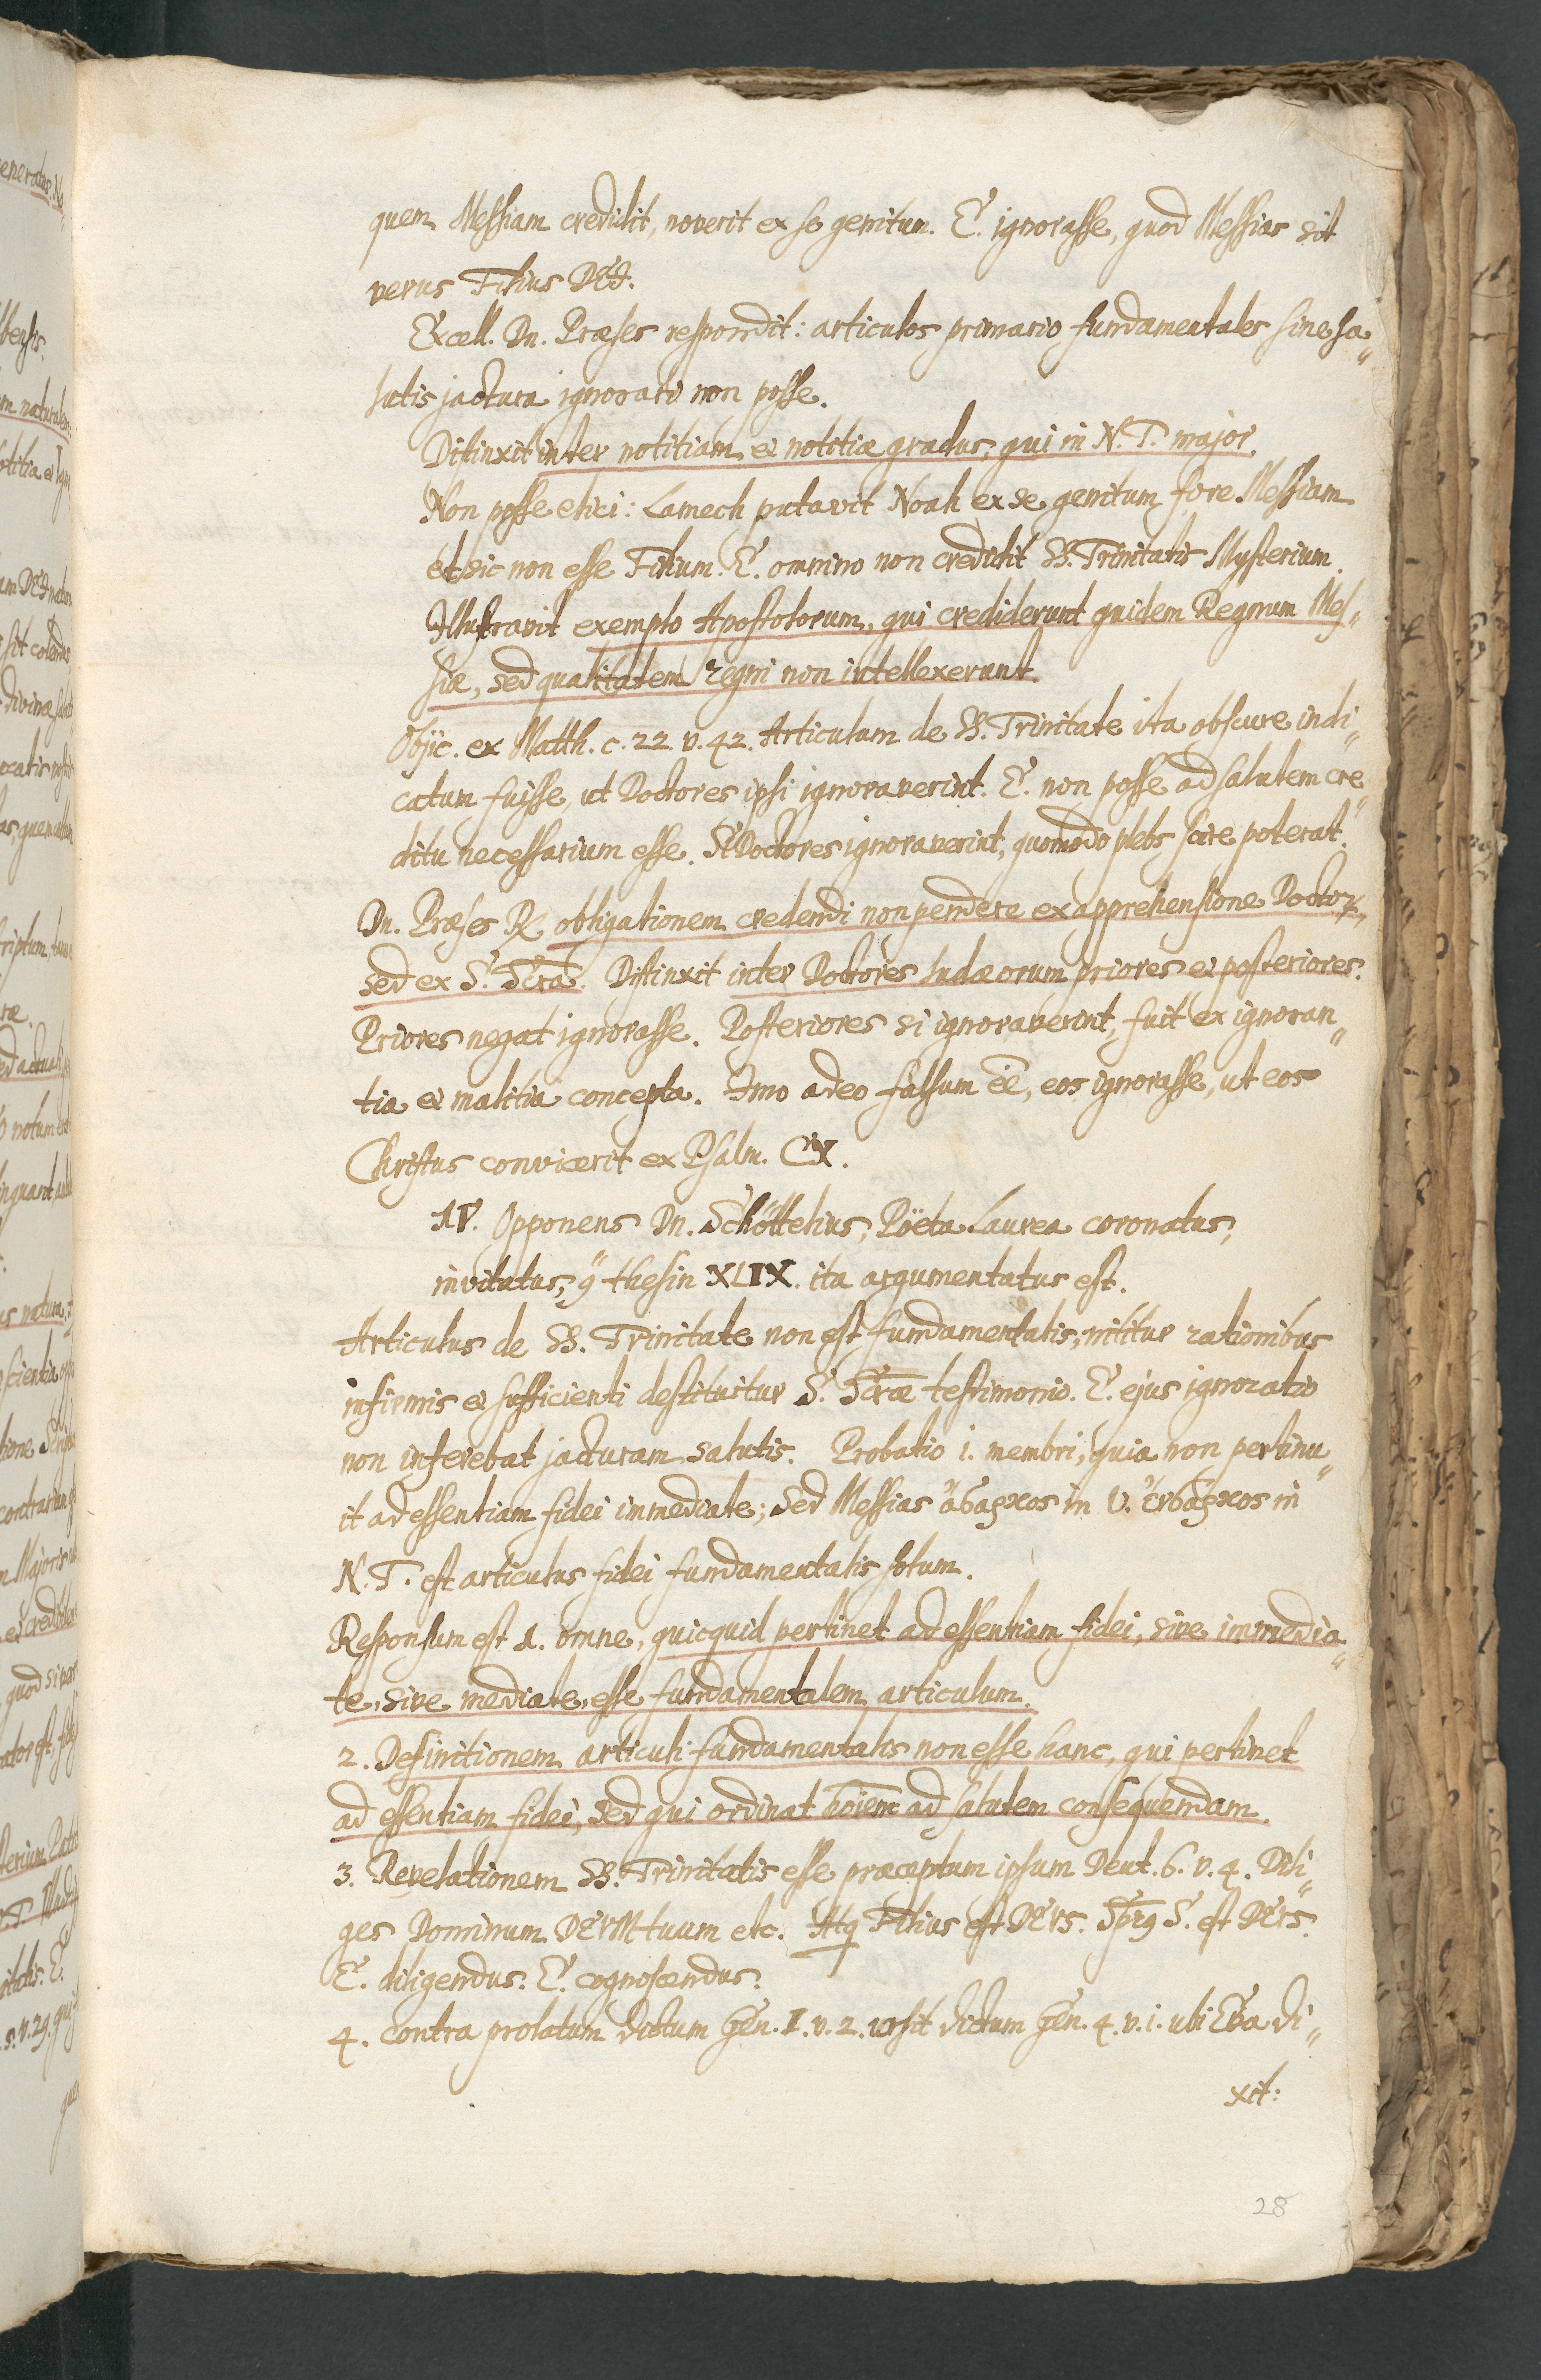 quem Messiam credidit, noverit ex se genitum. E. ignorasse, quod Messias sit
verus Filius DEI.
Excell. Dn. Præses respondit: articulos primario fundamentales sine sa„
lutis jactura ignorari non posse.
Distinxit inter notitiam et notitiæ gradus, qui in N. T. major.
Non posse elici: Lamech putavit Noah ex se genitum fore Messiam
et sic non esse Filium. E. omnino non credidit SS. Trinitatis Mysterium.
Illustravit exemplo Apostolorum, qui crediderunt quidem Regnum Mes„
siæ, sed qualitatem regni non intellexerunt.
Objic. ex Matth. c. 22. v. 42. Articulum de SS. Trinitate ita obscure indi„
catum fuisse, ut Doctores ipsi ignoraverint. E. non posse ad salutem cre„
ditu necessarium esse. Si Doctores ignoraverint, quomodo plebs scire poterat.
Dn. Præses R. obligationem credendi non pendere ex apprehensione Doctor.,
sed ex S. Scrâ. Distinxit inter Doctores Judæorum priores et posteriores.
Priores negat ignorasse. Posteriores si ignoraverint, fuit ex ignoran„
tia et malitia concepta. Imo adeo falsum eē, eos ignorasse, ut eos
Christus convicerit ex Psalm. CX.
IV. Opponens Dn. Schöttelius, Pöeta Laurea coronatus,
invitatus, thesin XLIX. ita argumentatus est.
Articulus de SS. Trinitate non est fundamentalis, nititur rationibus
infirmis et sufficienti destituitur S. Scræ testimonio. E. ejus ignoratio
non inferebat jacturam salutis. Probatio 1. membri, quia non pertinu„
it ad essentiam fidei immediate; Sed Messias ἄσαρκος in V. ἔνσαρκος in
N. T. est articulus fidei fundamentalis solum.
Responsum est 1. omne, quicquid pertinet ad essentiam fidei, sive immedia„
te, sive mediate, esse fundamentalem articulum.
2. Definitionem articuli fundamentalis non esse hanc, qui pertinet
ad essentiam fidei, sed qui ordinat hoīem ad salutem consequendam.
3. Revelationem SS. Trinitatis esse præceptum ipsum Deut. 6. v. 4. Dili„
ges Dominum DEUM tuum etc. Atq Filius est DEUS. Sp̄rg S. est DEUS.
E. diligendus. E. cognoscendus.
4. Contra prolatum dictum Gen. I. v. 2. ursit dictum Gen. 4. v. 1. ubi Eva di„
xit:
28